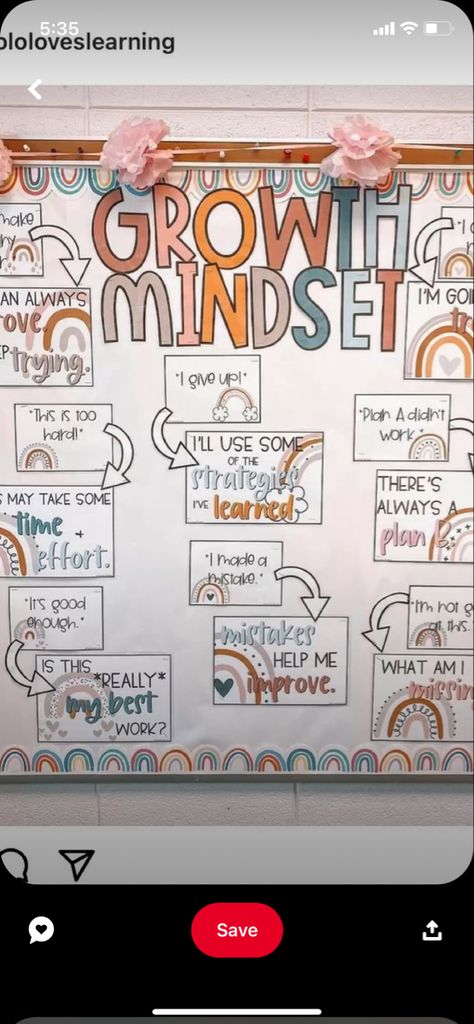 5:35
ololoveslearning
GROWTH
MINDSET
make
AN ALWAYS
ove.
trying.
I'M GOI
"I give up!"
"This is too
hard!"
"Plan A didn't
work."
I'LL USE SOME
OF THE
strategies
I'VE learned
S MAY TAKE SOME
time +
effort.
THERE'S
ALWAYS A
plan B.
"I made a
mistake."
"It's good
enough."
"I'm not g
at this.
mistakes
HELP ME
improve.
IS THIS
*REALLY*
my best
WORK?
WHAT AM I
missin
Save